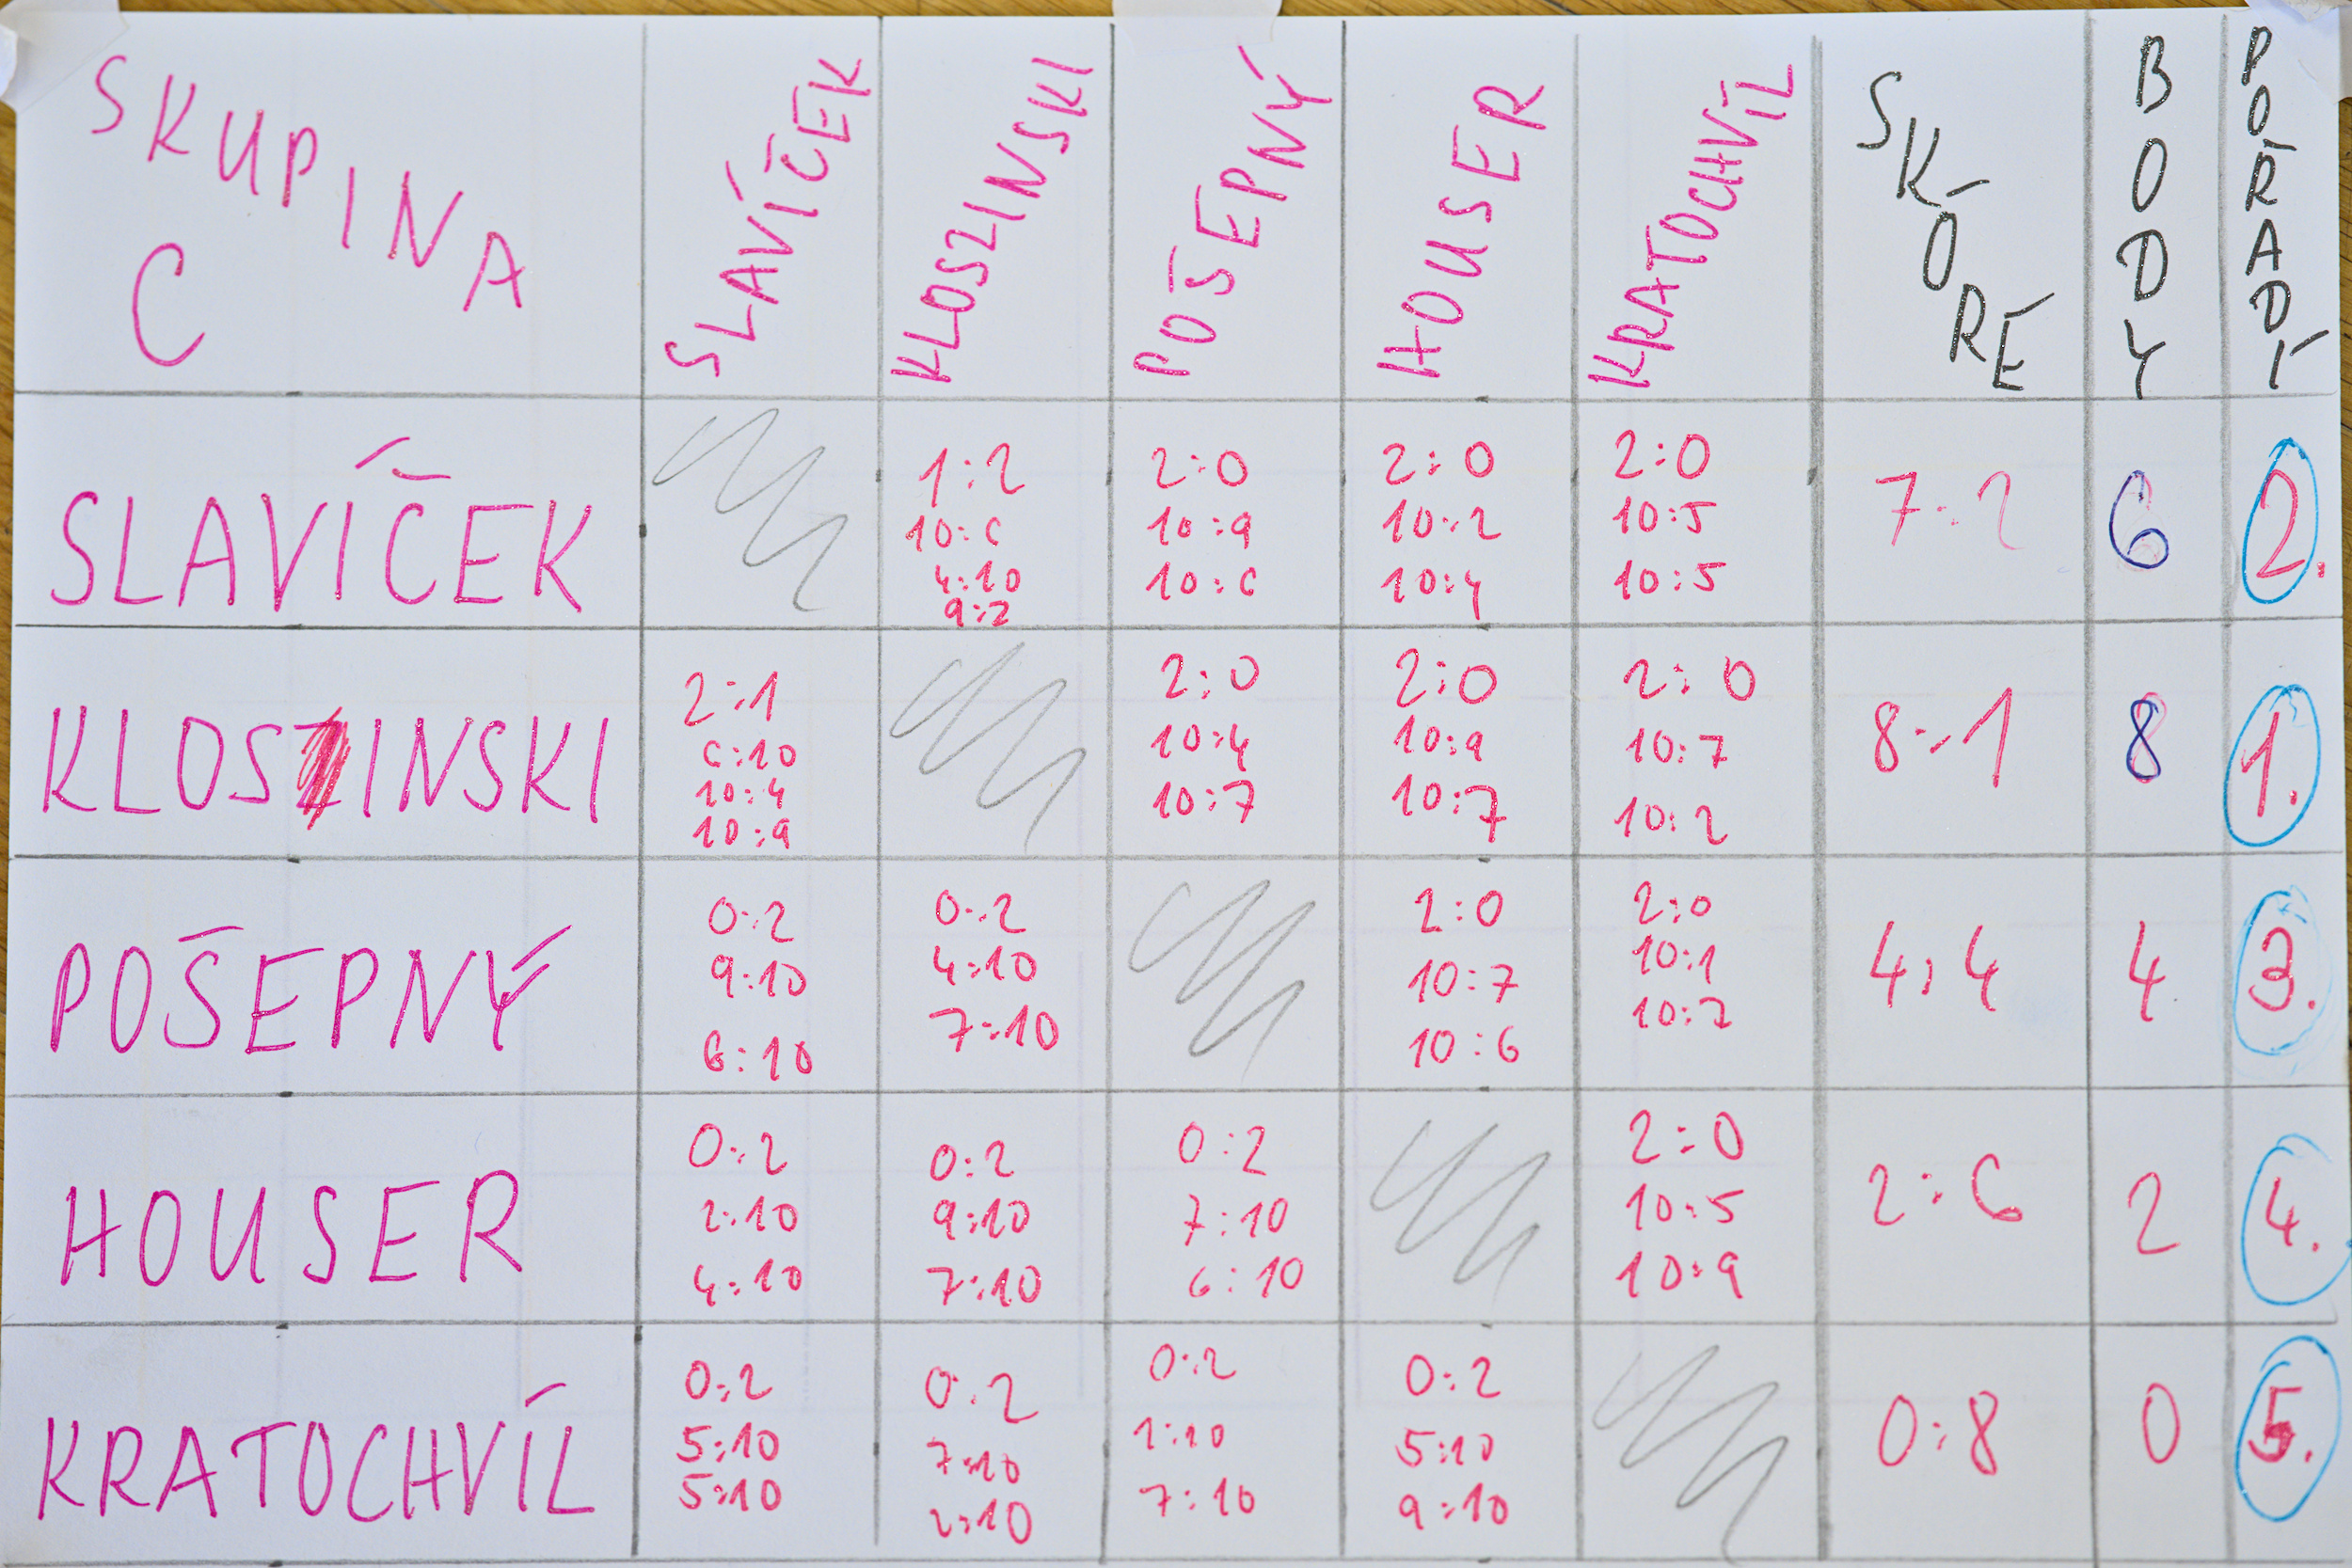 SKUPINA
C
SLAVÍČEK
KLOSZINSKI
POŠEPNÝ
HOUSER
KRATOCHVÍL
SKÓRÉ
BODY
PORADÍ
SLAVÍČEK
1:2
10:6
4:10
2:0
10:9
10:6
2:0
10:2
10:4
2:0
10:5
10:5
7:2
6
2.
KLOSINSKI
2:1
6:10
10:4
10:9
2:0
10:4
10:7
2:0
10:9
10:7
2:0
10:7
10:2
8:1
8
1.
POŠEPNÝ
0:2
9:10
6:10
0:2
4:10
7:10
2:0
10:7
10:6
2:0
10:1
10:7
4:4
4
3.
HOUSER
0:2
2:10
4:10
0:2
9:10
7:10
0:2
7:10
6:10
2:0
10:5
10:9
2:6
2
4.
KRATOCHVÍL
0:2
5:10
5:10
0:2
7:10
2:10
0:2
1:10
7:10
0:2
5:10
9:10
0:8
0
5.